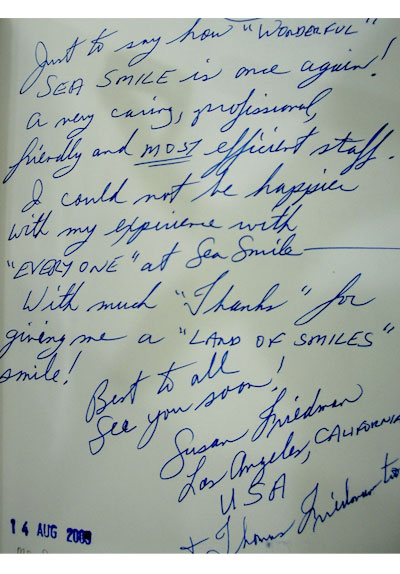 Just to say how "WONDERFUL"
SEA SMILE is once again!
a very caring, profissional,
friendly and MOST efficient staff.
I could not be happier
with my expirience with
"EVERYONE" at Sea Smile
With much "Thanks" for
giving me a "LAND OF SMILES"
smile!
Best to all
See you soon!
Susan Friedman
Los Angeles, CALIFORNIA
USA
+ Thomas Friedman
14 AUG 2009